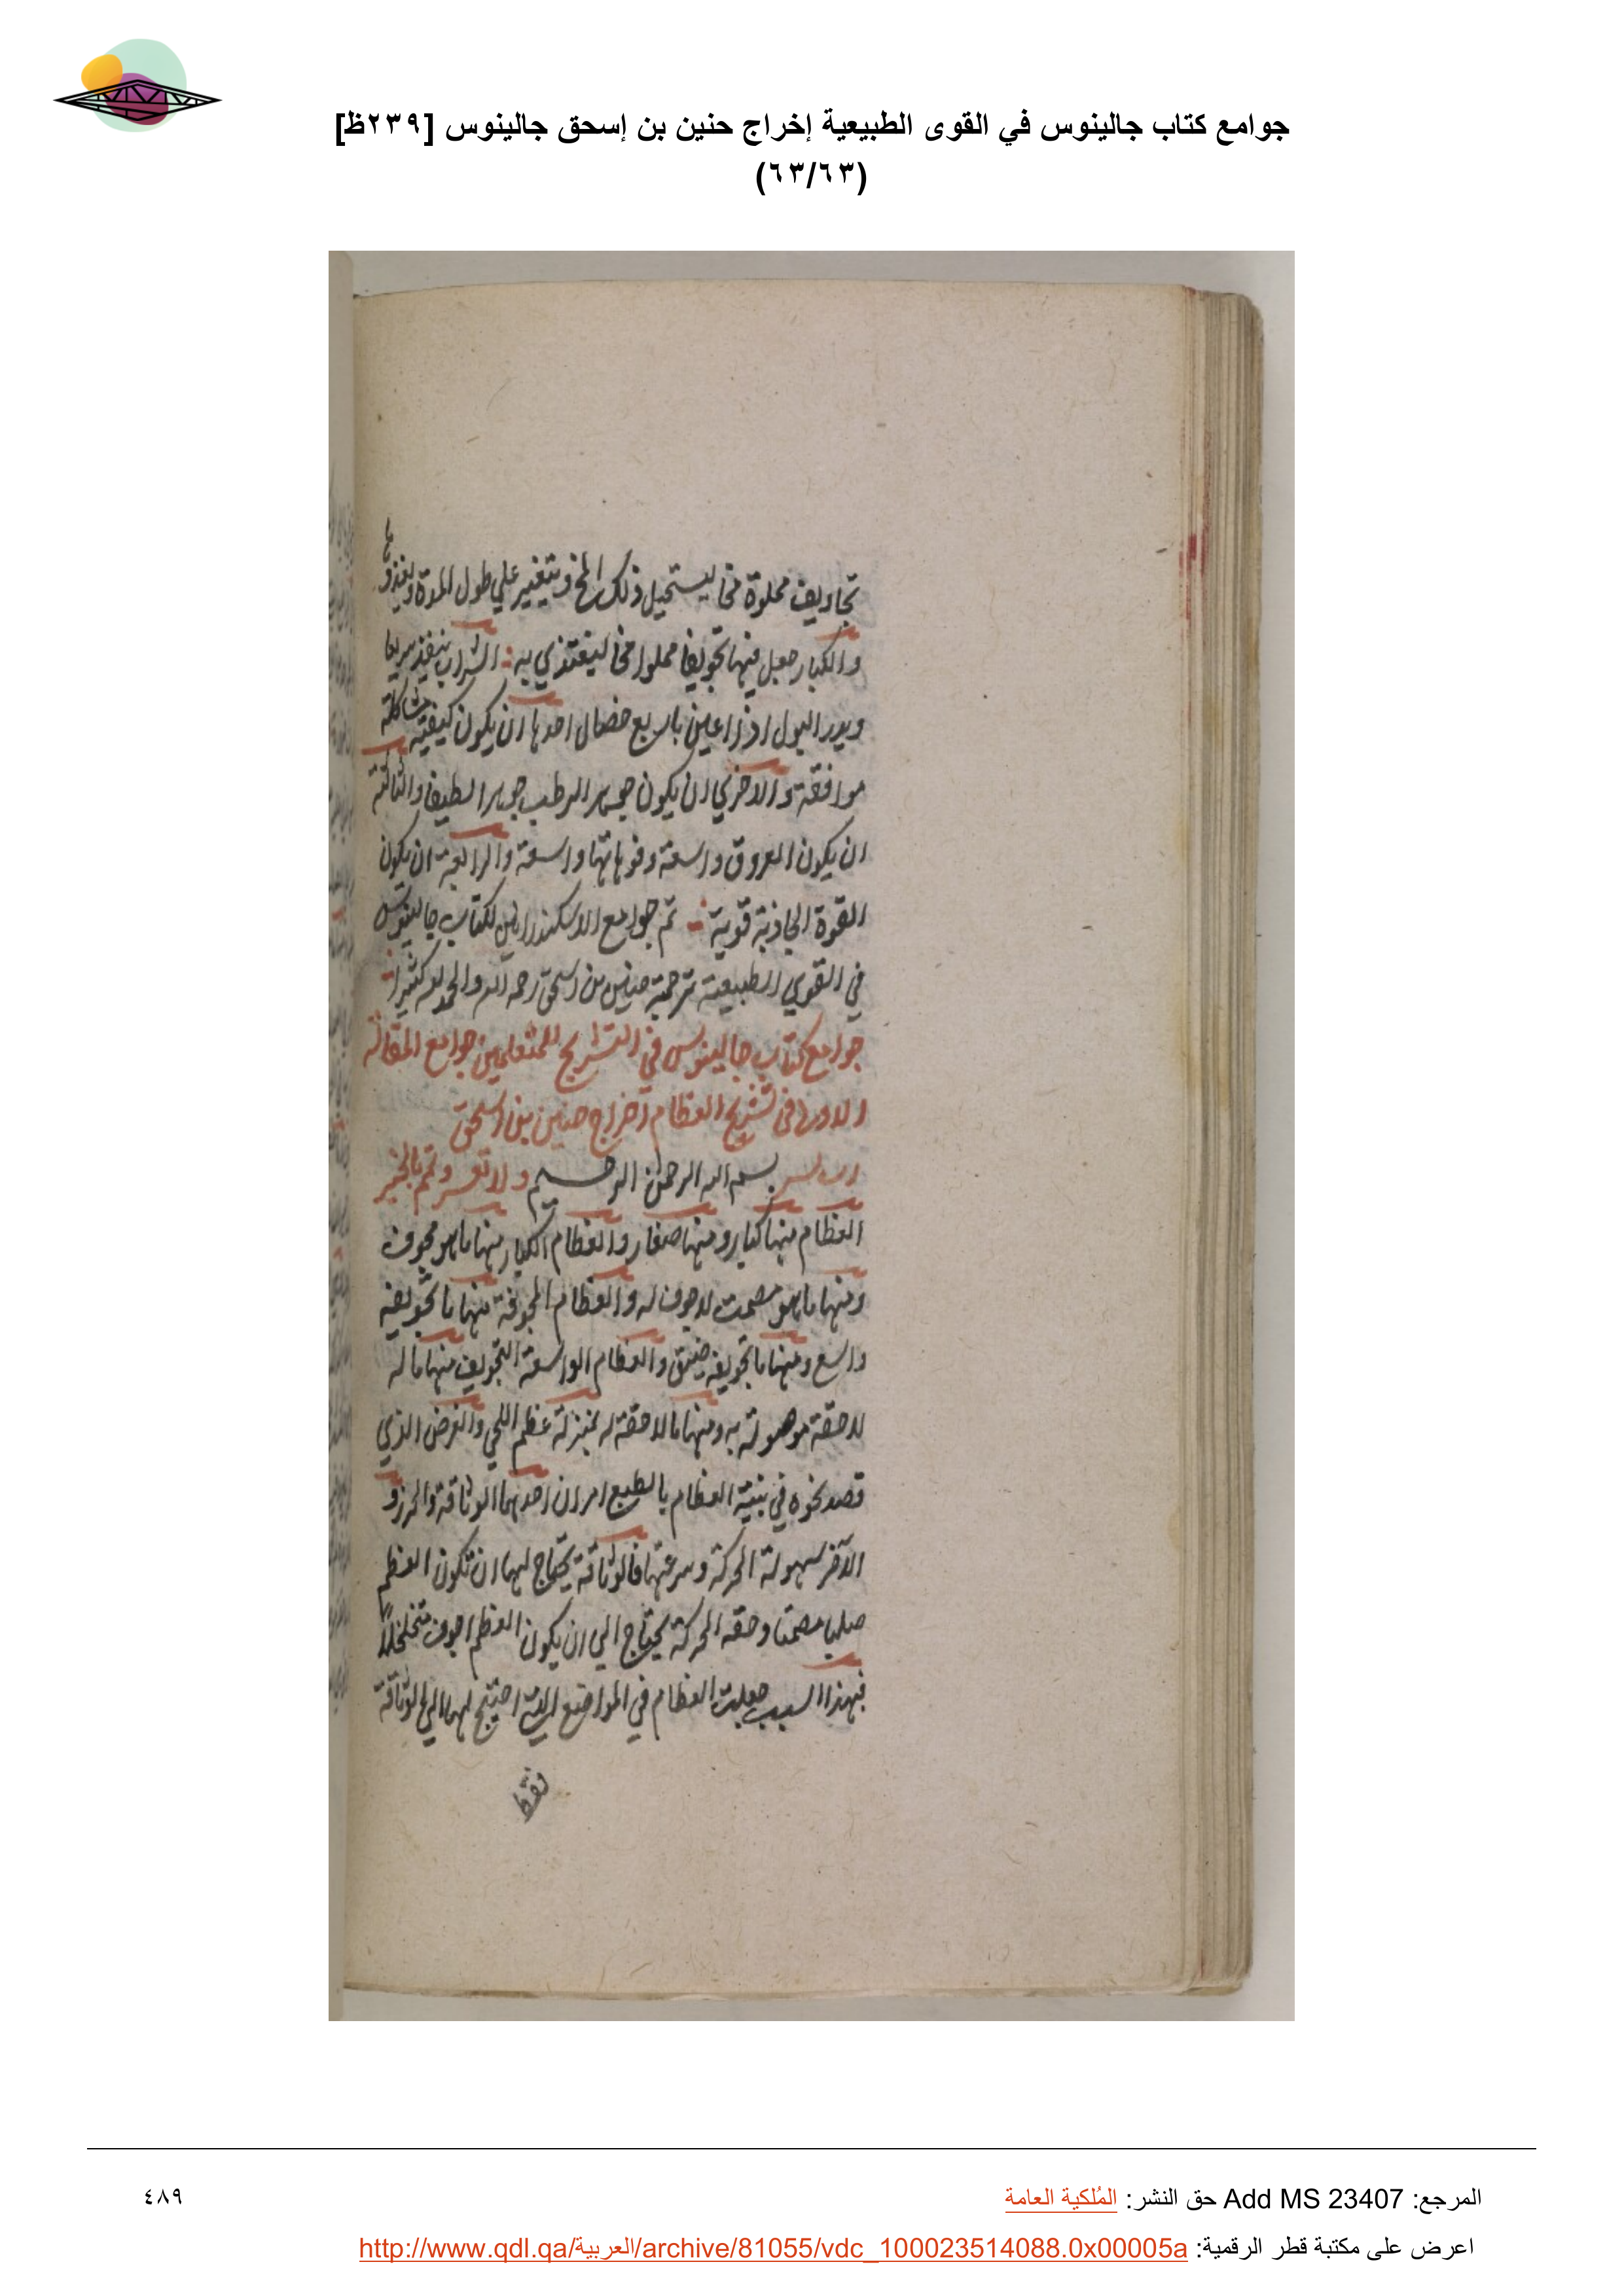 جوامع كتاب جالينوس في القوى الطبيعية إخراج حنين بن إسحق جالينوس [٢٣٩ظ]
(٦٣/٦٣)
تجاويف مملوة مخا ليستحيل ذلك المخ ويتغير علي طول المدة ويغذو
والكبار جعل فيها تجويفا مملوا مخا ليغتذي به الشراب ينفذ سريعا
ويدر البول اذا اعين باربع خصال احدها ان يكون كيفيته مشاكلة
موافقة والاخري ان يكون جوهر الرطب جوهرا لطيفا والثالثة
ان يكون العروق واسعة وفوهاتها واسعة والرابعة ان يكون
القوة الجاذبة قوية تم جوامع الاسكندرانيين لكتاب جالينوس
في القوي الطبيعية ترجمة حنين بن اسحق رحمه الله والحمد لله كثيرا
جوامع كتاب جالينوس في التشريح للمتعلمين جوامع المقالة
الاولي في تشريح العظام اخراج حنين بن اسحق
رب يسر بسم الله الرحمن الرحيم ولا تعسر وتمم بالخير
العظام منها كبار ومنها صغار والعظام الكبار منها ما هو مجوف
ومنها ما هو مصمت لا جوف له والعظام المجوفة منها ما تجويفه
واسع ومنها ما تجويفه ضيق والعظام الواسعة التجويف منها ما له
لاحقة موصولة به ومنها ما لا لاحقة له بمنزلة عظم اللحي والغرض الذي
قصد نحوه في بنية العظام بالطبع امران احدهما الوثاقة والحرز و
الآخر سهولة الحركة وسرعتها فالوثاقة يحتاج لها ان تكون العظم
صلبا مصمتا وخفة الحركة يحتاج الي ان يكون العظم اجوف متخلخلاً
فبهذا السبب جعلت العظام في المواضع التي احتيج لها الي الوثاقة
فقط
المرجع: Add MS 23407 حق النشر: المُلكية العامة
٤٨٩
اعرض على مكتبة قطر الرقمية: http://www.qdl.qa/العربية/archive/81055/vdc_100023514088.0x00005a